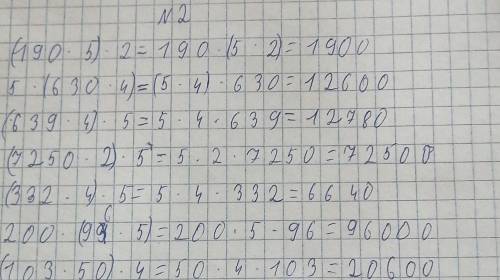 №2
(190 · 5) · 2 = 190 · (5 · 2) = 1900
5 · (630 · 4) = (5 · 4) · 630 = 12600
(639 · 4) · 5 = 5 · 4 · 639 = 12780
(7250 · 2) · 5 = 5 · 2 · 7250 = 72500
(332 · 4) · 5 = 5 · 4 · 332 = 6640
200 · (96 · 5) = 200 · 5 · 96 = 96000
(103 · 50) · 4 = 50 · 4 · 103 = 20600